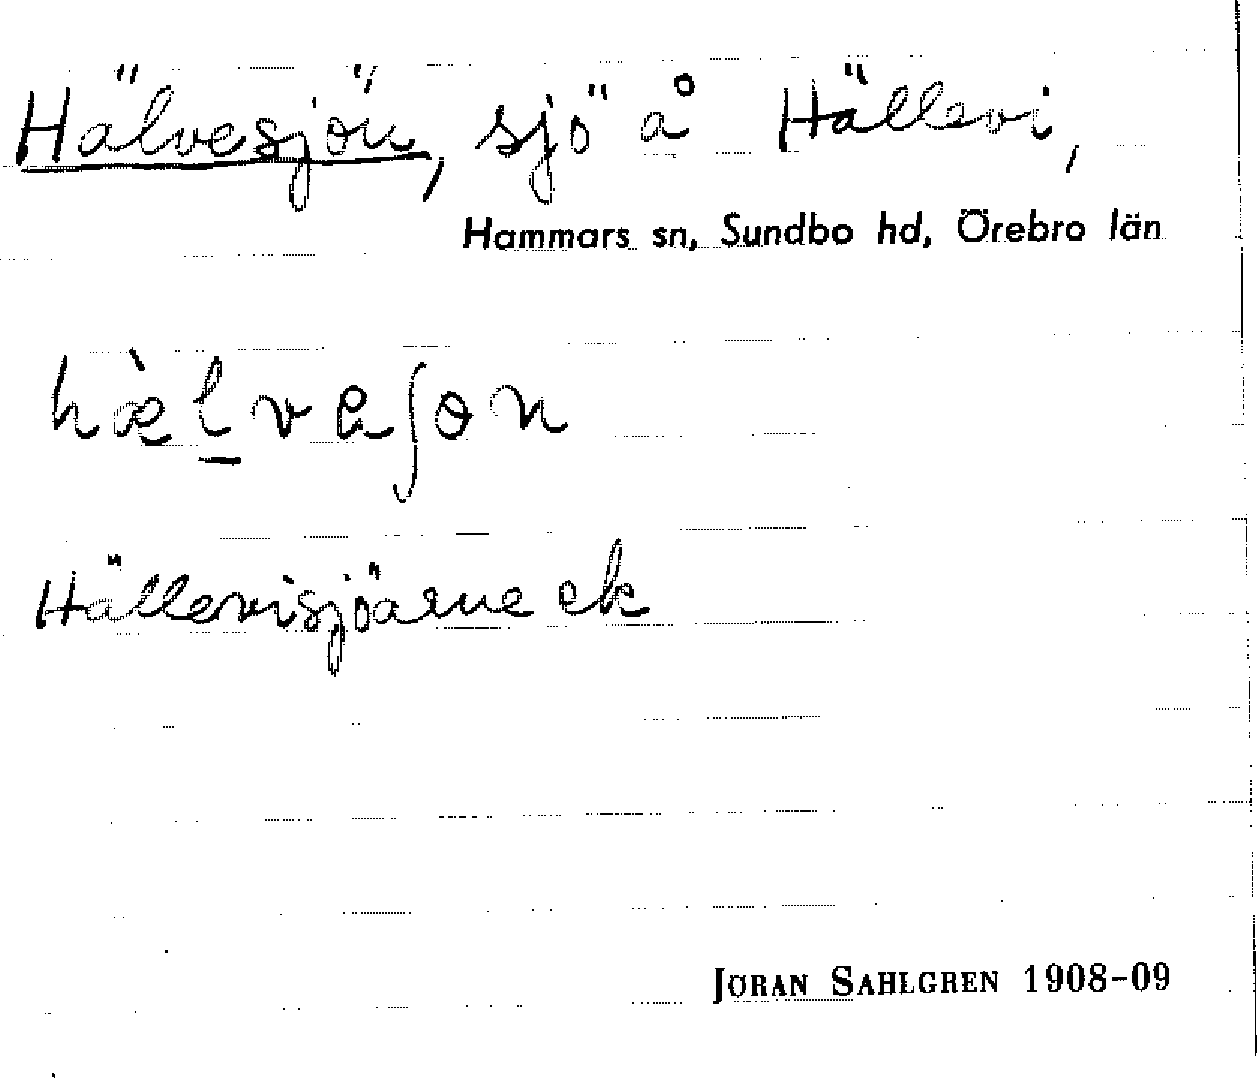 Hälvesjön, sjö å Hällevi,
Hammars sn, Sundbo hd, Örebro län
hæ̀l̠vaʃon
Hällevisjöarne ek
JÖRAN SAHLGREN 1908-09